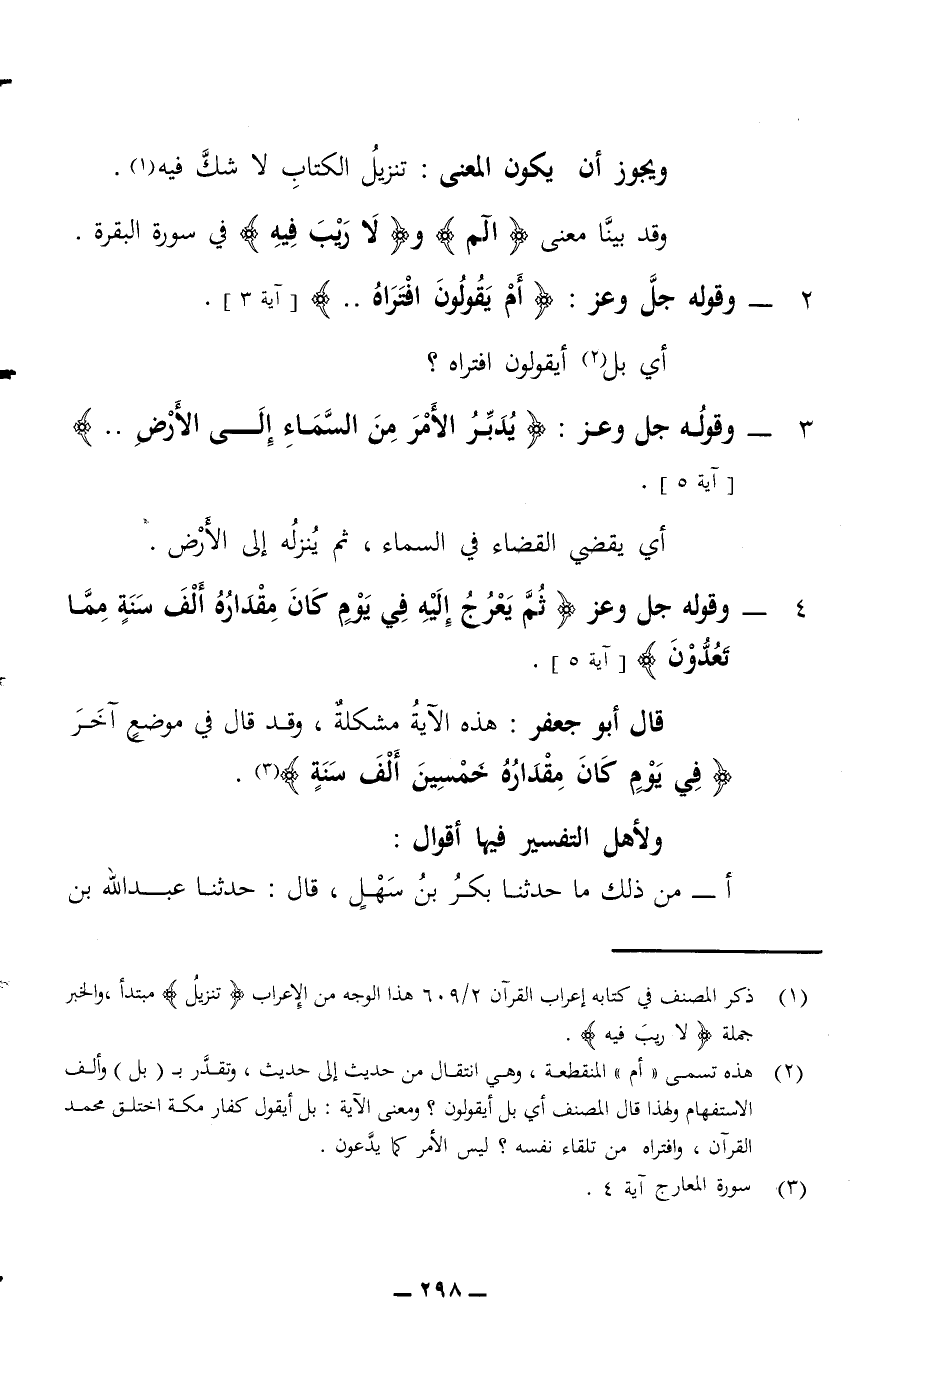 ويجوز أن يكون المعنى : تنزيلُ الكتابِ لا شكَّ فيه(١) .
وقد بينَّا معنى ﴿ الٓم ﴾ و﴿ لَا رَيْبَ فِيهِ ﴾ في سورة البقرة .
٢ ــ وقوله جلَّ وعز : ﴿ أَمْ يَقُولُونَ افْتَرَاهُ .. ﴾ [ آية ٣ ] .
أي بل(٢) أيقولون افتراه ؟
٣ ــ وقولُه جل وعـز : ﴿ يُدَبِّـرُ الأَمْرَ مِنَ السَّمَاءِ إِلَــى الأَرْضِ .. ﴾
[ آية ٥ ] .
أي يقضي القضاء في السماء ، ثم يُنزلُه إلى الأَرْض .
٤ ــ وقوله جل وعز ﴿ ثُمَّ يَعْرُجُ إِلَيْهِ فِي يَوْمٍ كَانَ مِقْدَارُهُ أَلْفَ سَنَةٍ مِمَّـا
تَعُدُّوْنَ ﴾ [ آية ٥ ] .
قال أبو جعفر : هذه الآيةُ مشكلةٌ ، وقـد قال في موضعٍ آخَـرَ
﴿ فِي يَوْمٍ كَانَ مِقْدَارُهُ خَمْسِينَ أَلْفَ سَنَةٍ ﴾(٣) .
ولأهل التفسير فيها أقوال :
أ ــ من ذلك ما حدثنـا بكـرُ بنُ سَهْلٍ ، قال : حدثنـا عبـــدالله بن
(١) ذكر المصنف في كتابه إعراب القرآن ٦٠٩/٢ هذا الوجه من الإعراب ﴿ تنزيلُ ﴾ مبتدأ ،والخبر
جملة ﴿ لا ريبَ فيه ﴾ .
(٢) هذه تسمـى « أم » المنقطعـة ، وهـي انتقـال من حديث إلى حديث ، وتقـدَّر بـ ( بل ) وألـف
الاستفهام ولهذا قال المصنف أي بل أيقولون ؟ ومعنى الآية : بل أيقول كفار مكـة اختلـق محمـد
القرآن ، وافتراه من تلقاء نفسه ؟ ليس الأمر كما يدَّعون .
(٣) سورة المعارج آية ٤ .
ــ ٢٩٨ ــ